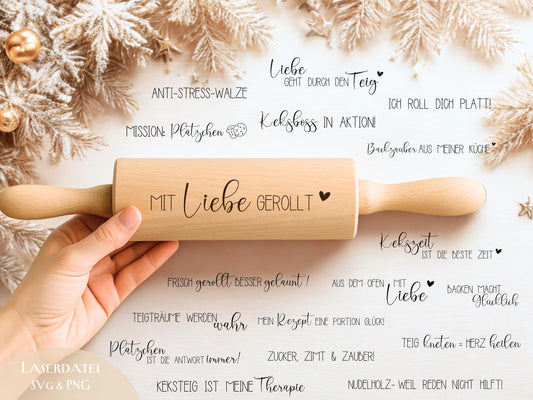 Liebe
GEHT DURCH DEN Teig
ANTI-STRESS-WALZE
ICH ROLL DICH PLATT!
MISSION: Plätzchen
Keksboss IN AKTION!
Backzauber AUS MEINER KÜCHE
MIT Liebe GEROLLT
Kekszeit
IST DIE BESTE ZEIT
FRISCH gerollt BESSER gelaunt!
AUS DEM OFEN MIT
Liebe
BACKEN MACHT
Glücklich
TEIGTRÄUME WERDEN
wahr
MEIN Rezept EINE PORTION GLÜCK!
TEIG kneten = HERZ heilen
Plätzchen
IST DIE ANTWORT immer!
ZUCKER, ZIMT & ZAUBER!
KEKSTEIG IST MEINE Therapie
NUDELHOLZ- WEIL REDEN NICHT HILFT!
LASERDATEI
SVG & PNG